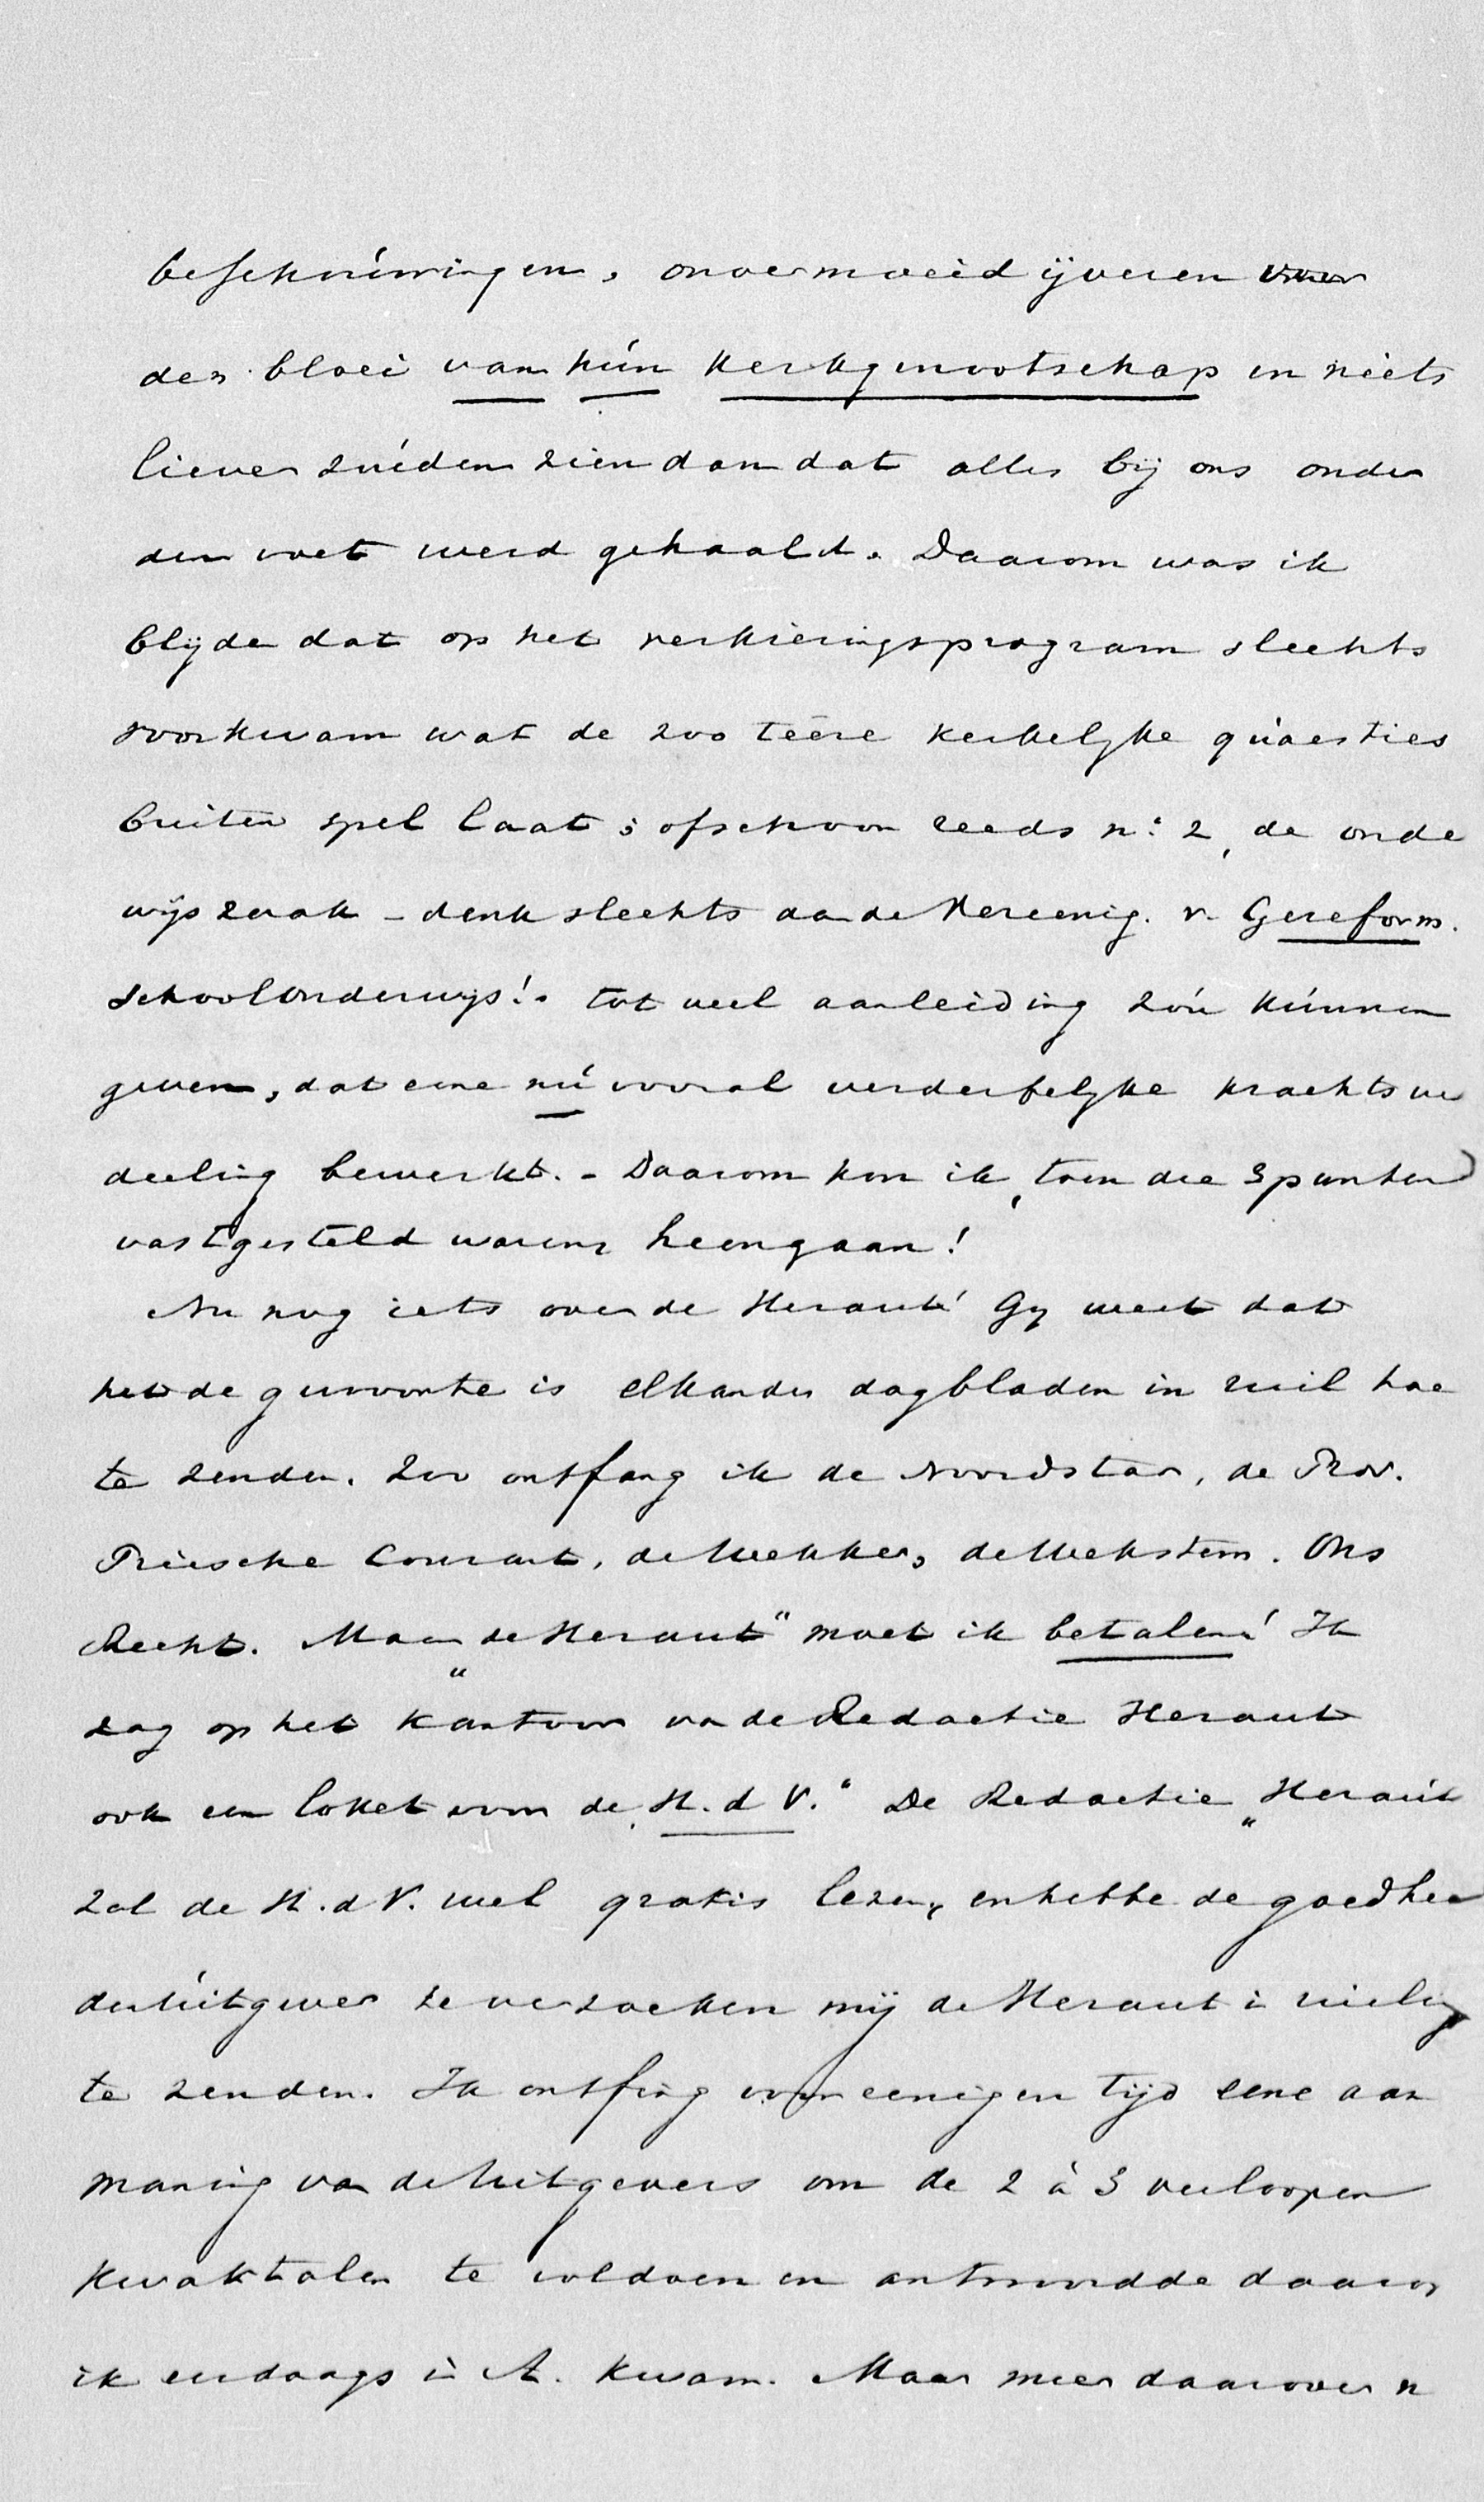 beschrijvingen, onvermoeid ijveren voor
den bloei van hún kerkgenootschap en niets
liever zúiden zien dan dat alles bij ons onder
den voet werd gehaald. Daarom was ik
blijde dat op het verkiezingsprogram slechts
voorkwam wat de zoo teêre kerkelijke quaesties
buiten spel laat; ofschoon reeds n: 2, de onde
wijszaak - denk slechts aan de Vereenig. v. Gereform.
schoolonderwijs! - tot veel aanleiding zóu kúnnen
geven, dat eene nú vooral verderfelijke krachtsve
deeling bewerkt. - Daarom kon ik, toen die 3 punten
vastgesteld waren heengaan!
Nu nog iets over de Heraut! Gij weet dat
het de gewoonte is elkander dagbladen in ruil toe
te zenden. Zoo ontfang ik de Noordstar, de Prov.
Friesche Courant, de Wekker, de Wekstem. Ons
Recht. Maar „de Heraut" moet ik betalen! Ik
zag op het kantoor van de Redactie Heraut
ook een loket voor de „St. d V." De Redactie „Heraút
zal de St. d V. wel gratis lezen, en hebbe de goedhei
den úitgever te verzoeken mij de Heraut in ruiling
te zenden. Ik ontfing voor eenigen tijd eene aan
maning van de Uitgevers om de 2 à 3 verloopen
kwartalen te voldoen en antwoordde daarop
ik eerdaags in A. kwam. Maar meer daarover n